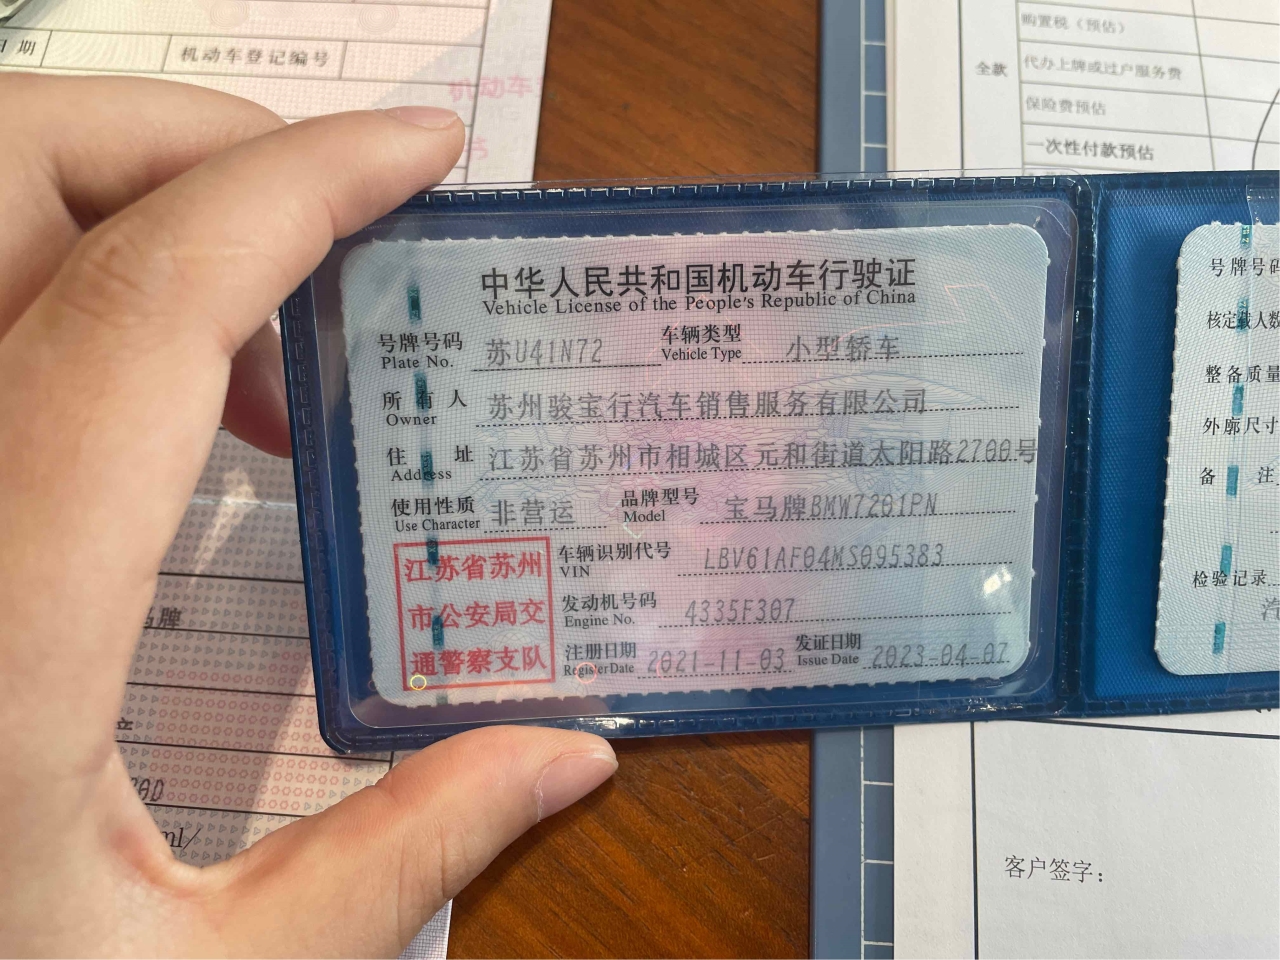 日 期
机动车登记编号
机动车
全款
购置税（预估）
代办上牌或过户服务费
保险费预估
一次性付款预估
中华人民共和国机动车行驶证
Vehicle License of the People's Republic of China
号牌号码 苏U41N72 车辆类型 小型轿车
Plate No. Vehicle Type
所有人 苏州骏宝行汽车销售服务有限公司
Owner
住址 江苏省苏州市相城区元和街道太阳路2700号
Address
使用性质 非营运 品牌型号 宝马牌BMW7201PN
Use Character Model
江苏省苏州
市公安局交
通警察支队
车辆识别代号 LBV61AF04MS095383
VIN
发动机号码 4335F307
Engine No.
注册日期 2021-11-03 发证日期 2023-04-07
Register Date Issue Date
号牌号码
核定载人数
整备质量
外廓尺寸
备注
检验记录
马牌
ml/
客户签字：